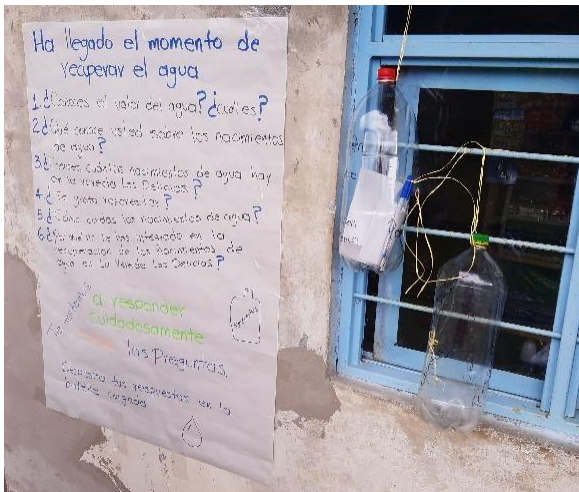 Ha llegado el momento de
recuperar el agua
1.¿Conoces el valor del agua? ¿cuál es?
2.¿Qué conoce usted sobre los nacimientos
de agua?
3.¿ cuántos nacimientos de agua hay
en la vereda Las Delicias?
4.¿Te gusta ?
5.¿Cómo cuidas los nacimientos de agua?
6.¿ interesado en la
recuperación de los nacimientos de
agua en la Vereda Las Delicias?
Te
a responder
cuidadosamente
las Preguntas.
tus respuestas en la
botella colgada